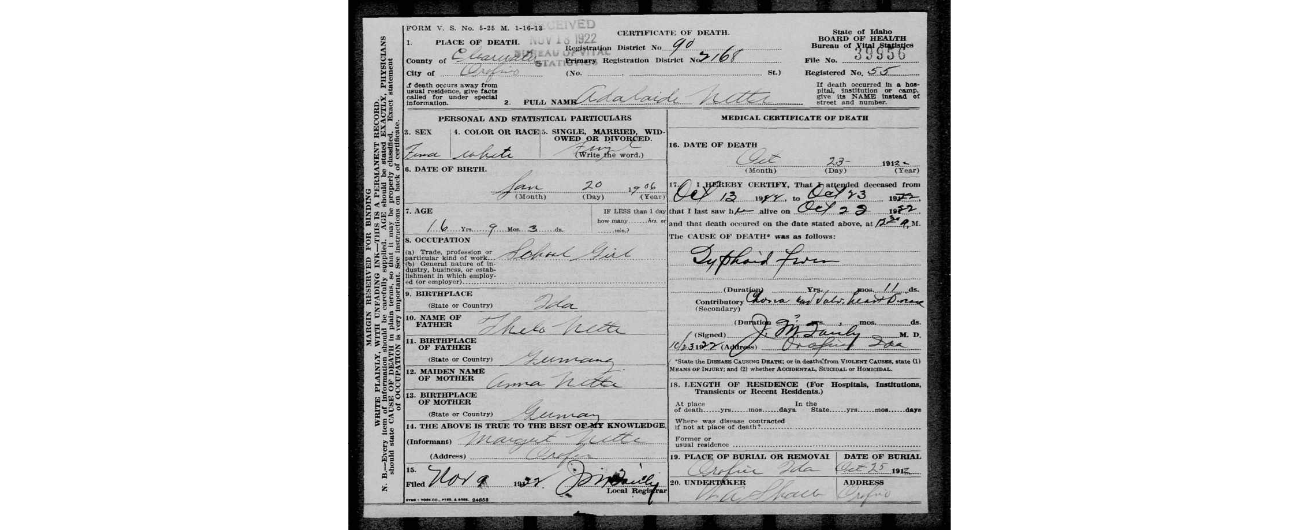 FORM V. S. No. 5-25 M. 1-16-13
RECEIVED
NOV 18 1922
BUREAU OF VITAL
STATISTICS
CERTIFICATE OF DEATH.
State of Idaho
BOARD OF HEALTH
Bureau of Vital Statistics
File No. 39956
Registered No. 55
1. PLACE OF DEATH.
County of Clearwater
City of Orofino
Registration District No 90
Primary Registration District No. 2168
(No. St.)
If death occurs away from usual residence, give facts called for under special information.
If death occurred in a hospital, institution or camp, give its NAME instead of street and number.
2. FULL NAME Adalaide Nette
MARGIN RESERVED FOR BINDING
WRITE PLAINLY, WITH UNFADING INK—THIS IS A PERMANENT RECORD.
N. B.—Every item of information should be carefully supplied. AGE should be stated EXACTLY. PHYSICIANS
should state CAUSE OF DEATH in plain terms, so that it may be properly classified. Exact statement
of OCCUPATION is very important. See instructions on back of certificate.
PERSONAL AND STATISTICAL PARTICULARS
3. SEX
Fema
4. COLOR OR RACE
white
5. SINGLE, MARRIED, WIDOWED OR DIVORCED.
(Write the word.)
6. DATE OF BIRTH.
Jan 20 1906
(Month) (Day) (Year)
7. AGE
16 Yrs. 9 Mos. 3 ds.
IF LESS than 1 day
how many Hrs. or
min.?
8. OCCUPATION
(a) Trade, profession or particular kind of work.
(b) General nature of industry, business, or establishment in which employed (or employer)
School Girl
9. BIRTHPLACE
(State or Country) Ida
10. NAME OF FATHER Nette
11. BIRTHPLACE OF FATHER
(State or Country) Germany
12. MAIDEN NAME OF MOTHER Anna Nette
13. BIRTHPLACE OF MOTHER
(State or Country) Germany
14. THE ABOVE IS TRUE TO THE BEST OF MY KNOWLEDGE.
(Informant) Margert Nette
(Address) Orofino
15.
Filed Nov 9 1922
Local Registrar
MEDICAL CERTIFICATE OF DEATH
16. DATE OF DEATH
Oct 23 1912
(Month) (Day) (Year)
17. I HEREBY CERTIFY, That I attended deceased from
Oct 13 1922 to Oct 23 1922
that I last saw her alive on Oct 23 1922
and that death occured on the date stated above, at M.
The CAUSE OF DEATH* was as follows:
Typhoid Fever
(Duration) Yrs. mos. 11 ds.
Contributory Chorea and Valv. heart Disease
(Secondary)
(Duration) mos. ds.
(Signed) M. D.
10/23 1922 (Address) Orofino Ida
*State the DISEASE CAUSING DEATH; or in deaths from VIOLENT CAUSES, state (1) MEANS OF INJURY; and (2) whether ACCIDENTAL, SUICIDAL or HOMICIDAL.
18. LENGTH OF RESIDENCE (For Hospitals, Institutions, Transients or Recent Residents.)
At place of death yrs. mos. days
In the State yrs. mos. days
Where was disease contracted if not at place of death?
Former or usual residence
19. PLACE OF BURIAL OR REMOVAL
Orofino Ida
DATE OF BURIAL
Oct 25 191
20. UNDERTAKER
ADDRESS
Orofino